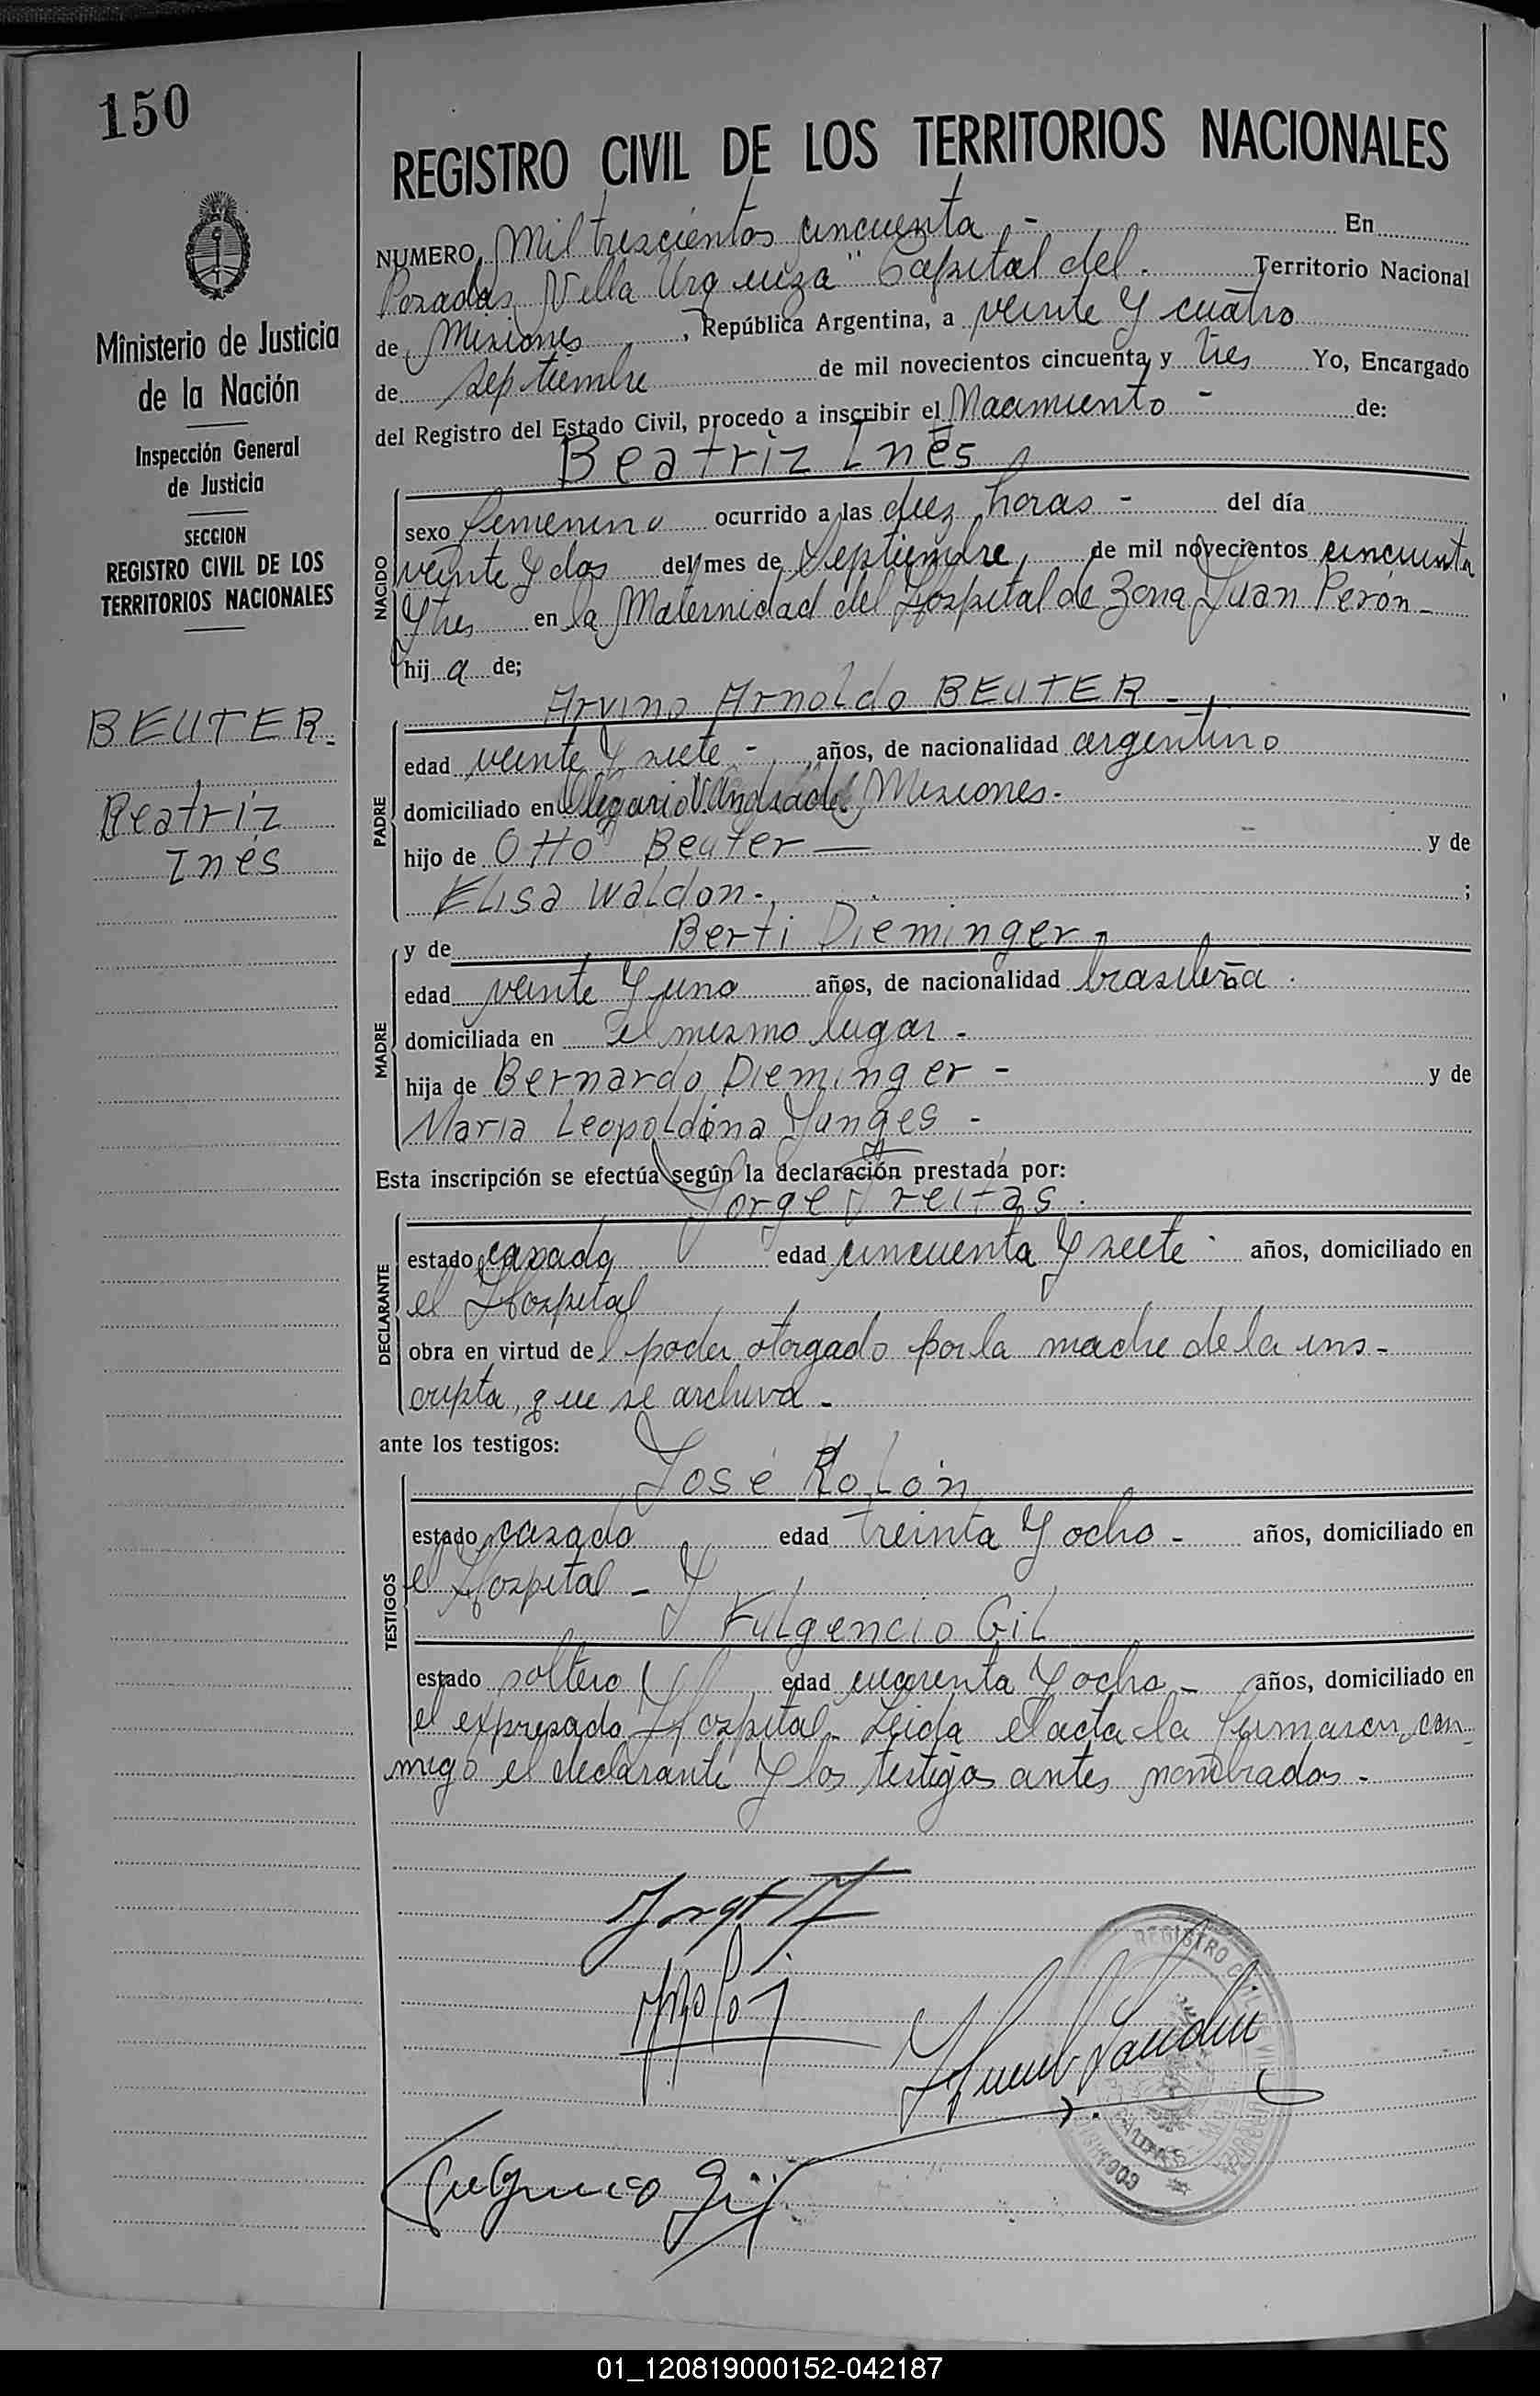 150
REGISTRO CIVIL DE LOS TERRITORIOS NACIONALES
Ministerio de Justicia
de la Nación
Inspección General
de Justicia
SECCION
REGISTRO CIVIL DE LOS
TERRITORIOS NACIONALES
BEUTER.
Beatriz
Inés
NUMERO Mil trescientos cincuenta - En
Posadas "Villa Urquiza" Capital del Territorio Nacional
de Misiones, República Argentina, a veinte y cuatro
de septiembre de mil novecientos cincuenta y tres Yo, Encargado
del Registro del Estado Civil, procedo a inscribir el Nacimiento - de:
Beatriz Inés
NACIDO
sexo femenino ocurrido a las diez horas - del día
veinte y dos del mes de Septiembre de mil novecientos cincuenta
y tres en la Maternidad del Hospital de Zona Juan Perón -
hija de;
Arvino Arnoldo BEUTER -
PADRE
edad veinte y siete - años, de nacionalidad argentino
domiciliado en Olegario V. Andrade Misiones.
hijo de Otto Beuter — y de
Elisa Waldon. ;
y de Berti Dieminger -
MADRE
edad veinte y uno años, de nacionalidad brasileña.
domiciliada en el mismo lugar -
hija de Bernardo Dieminger - y de
Maria Leopoldina Yunges -
Esta inscripción se efectúa según la declaración prestada por:
Jorge Freitas.
DECLARANTE
estado casado edad cincuenta y siete - años, domiciliado en
el Hospital
obra en virtud del poder otorgado por la madre de la ins-
cripta, que se archiva -
ante los testigos:
José Rolón
TESTIGOS
estado casado edad treinta y ocho - años, domiciliado en
el Hospital - y
Fulgencio Gil
estado soltero edad cuarenta y ocho - años, domiciliado en
el expresado Hospital - Leida el acta la firmaron con-
migo el declarante y los testigos antes nombrados -
Fulgencio Gil
REGISTRO CIVIL DE VILLA URQUIZA
POSADAS
MISIONES
01_120819000152-042187